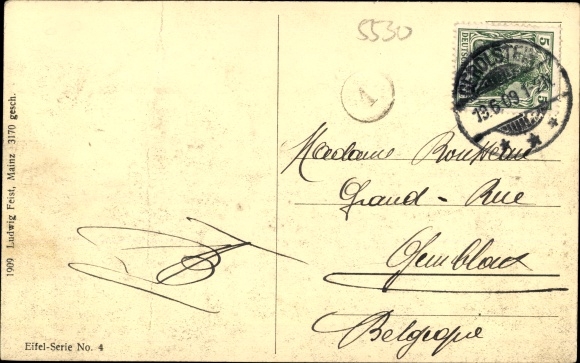 5530
5
DEUTSCHES
GEROLSTEIN
13.6.09.
1
1909 Ludwig Feist, Mainz 3170 gesch.
Madame Rousseau
Grand-Rue
Gembloux
Belgique
Eifel-Serie No. 4